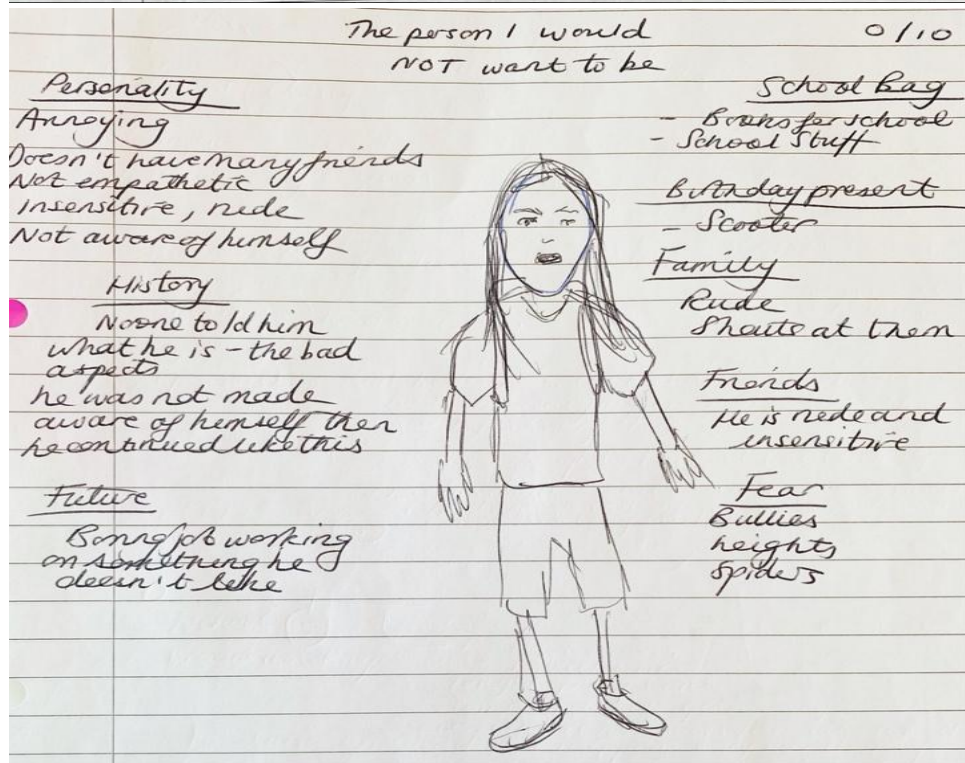 The person I would
NOT want to be
0/10
Personality
Annoying
Doesn't have many friends
Not empathetic
insensitive, rude
Not aware of himself
History
Noone told him
what he is - the bad
aspects
he was not made
aware of himself then
he continued like this
Future
Boring job working
on something he
doesn't like
School Bag
- Books for school
- School Stuff
Birthday present
- Scooter
Family
Rude
Shouts at them
Friends
He is rude and
insensitive
Fear
Bullies
heights
Spiders